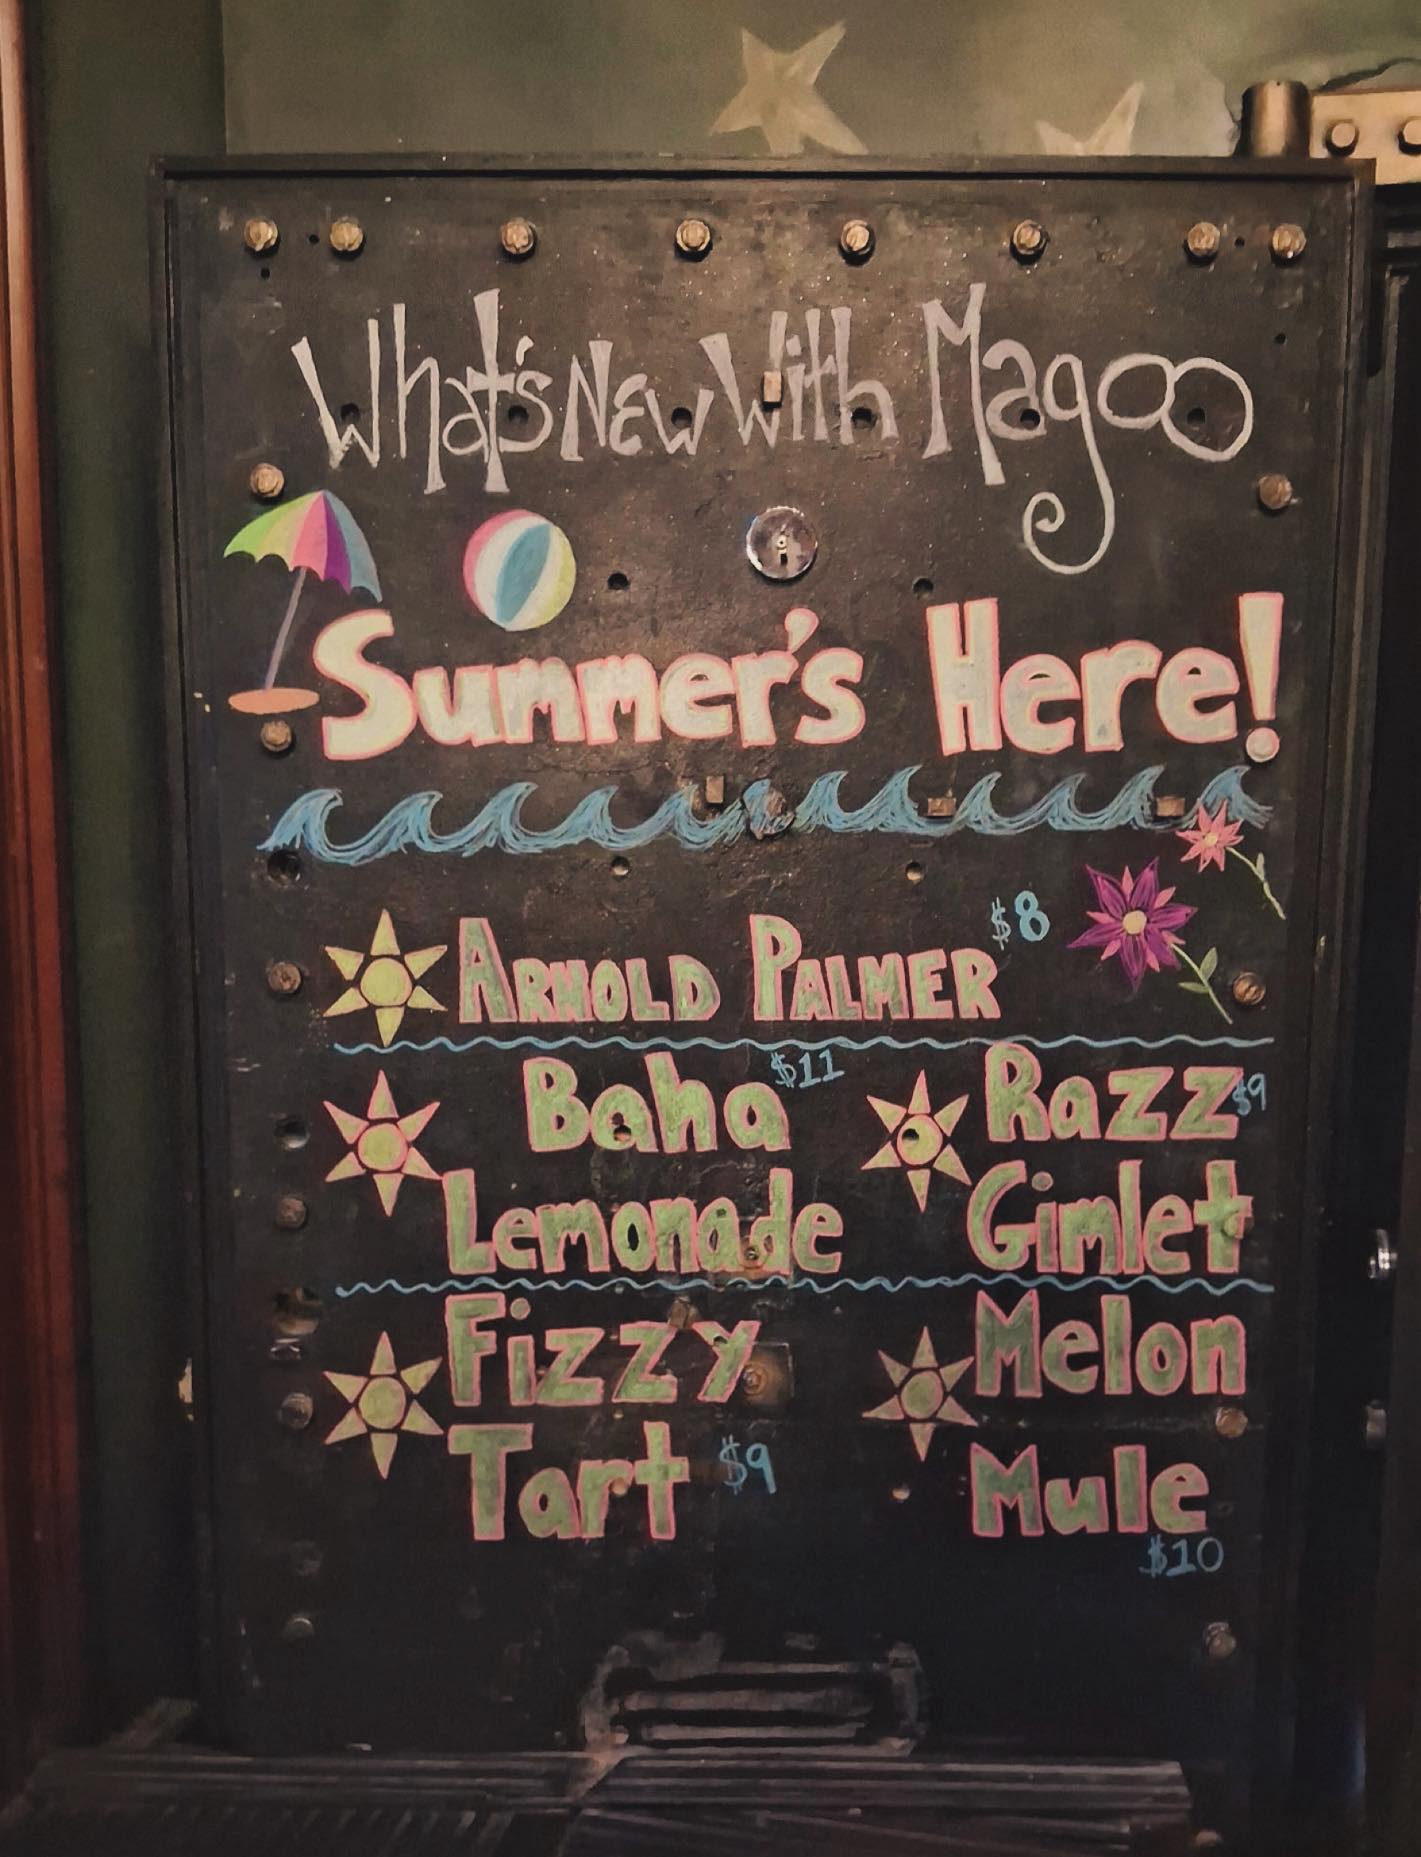 What's New With Magoo
Summer's Here!
Arnold Palmer $8
Baha $11
Lemonade
Razz $9
Gimlet
Fizzy
Tart $9
Melon
Mule
$10